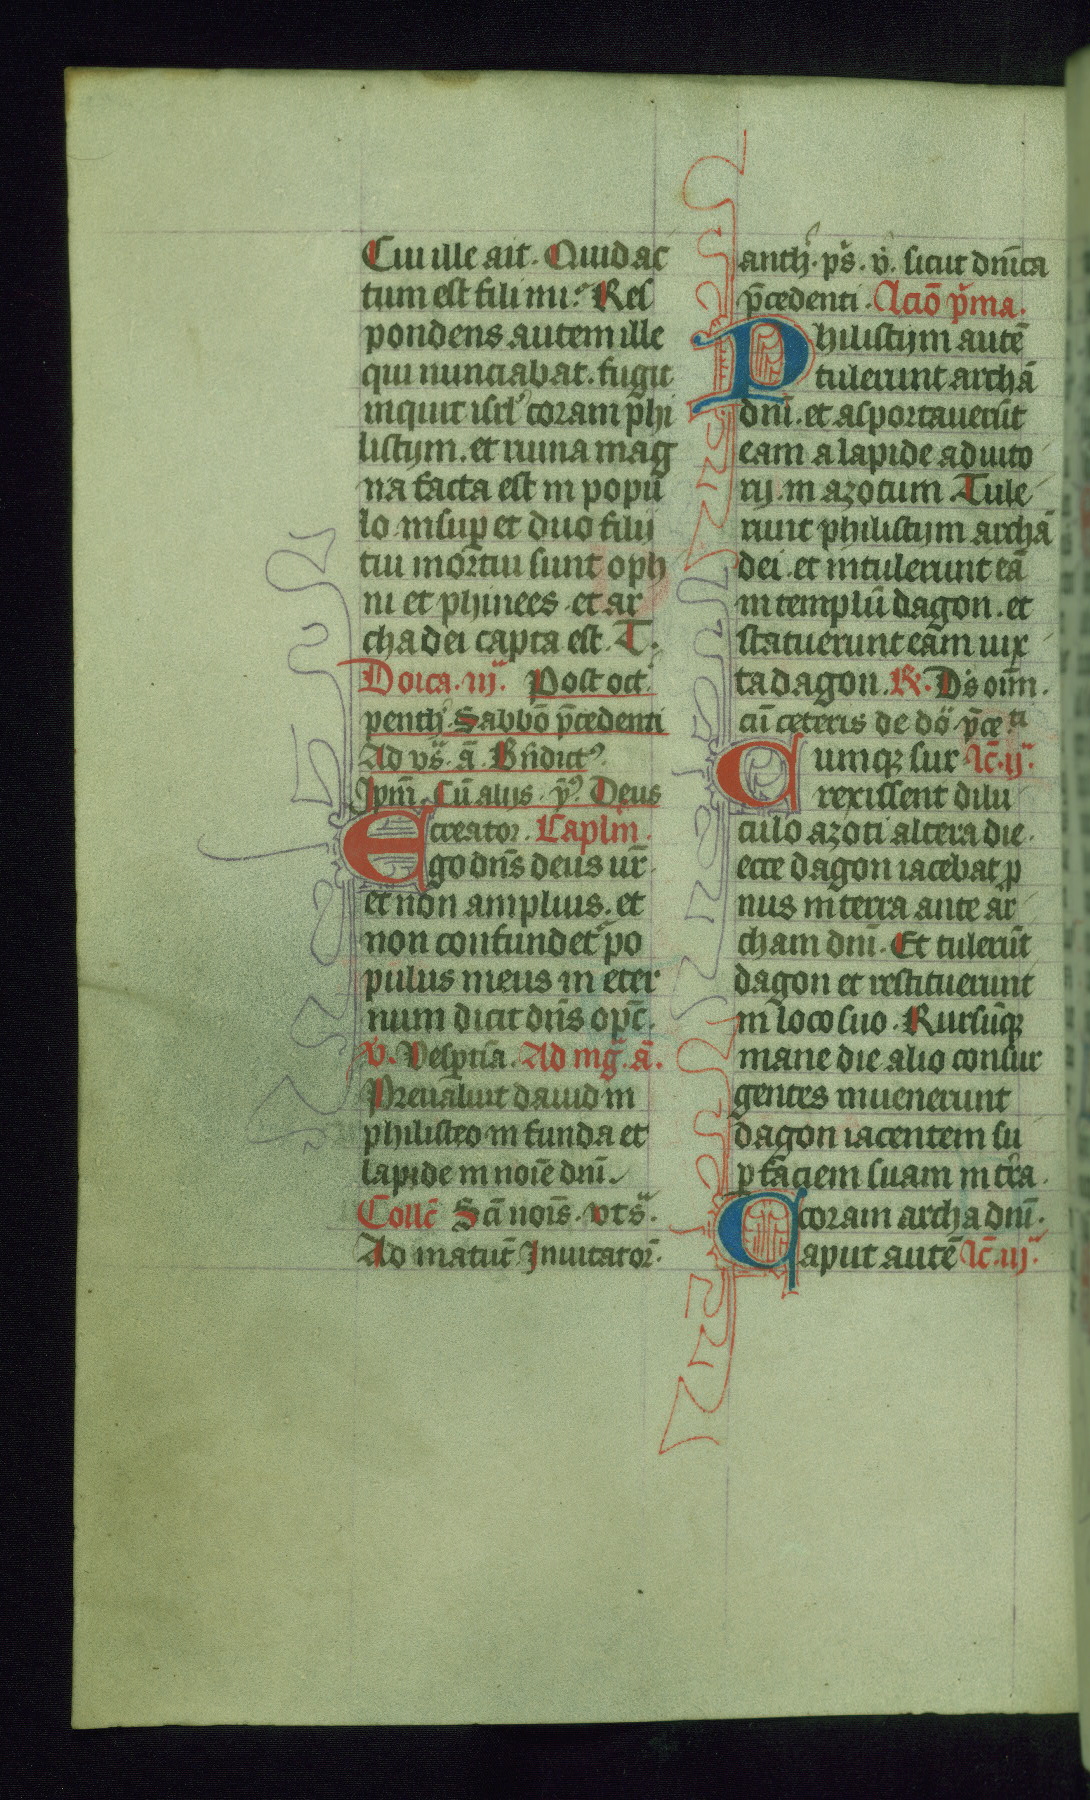 Cui ille ait. Quid ac
tum est fili mi? Res
pondens autem ille
qui nunciabat. fugit
inquit isrl' coram phi
listijm. et ruina mag
na facta est in popu
lo insup et duo filij
tui mortui sunt oph
ni et phinees. et ar
cha dei capta est. T.
Doica. iij. Post oct.
penth. Sabbō p̄cedenti
Ad vs. ā. Bn̄dict9.
Ipm̄. Cū alijs. Deus
creator. Caplm̄.
Ego dn̄s deus vr̄.
et non amplius. et
non confundet' po
pulus meus in eter
num dicit dn̄s op̄c.
v. Vesptīa. Ad mḡ. ā.
Preualuit dauid in
philisteo in funda et
lapide in noīe dnī.
Collc̄ Sc̄i noīs. vt s.
Ad matut̄ Inuitator̄.
anth. ps. v. sicut dnīca
p̄cedenti. Lctō p̄ma.
Philistijm autē
tulerunt archā
dnī. et asportauerūt
eam a lapide adiuto
rij. in azotum. Tule
runt philistijm archā
dei. et intulerunt eā
in templū dagon. et
statuerunt eam iux
ta dagon. R. Ds oīm.
cū ceteris de dō. p̄ce ti
Cumq; sur lc̄. ij.
rexissent dilu
culo azoti altera die.
ecce dagon iacebat p
nus in terra ante ar
cham dnī. Et tulerūt
dagon et restituerunt
in loco suo. Rursūq;
mane die alio consur
gentes inuenerunt
dagon iacentem su
p faciem suam in tr̄a.
coram archa dnī.
Caput autē lc̄. iij.